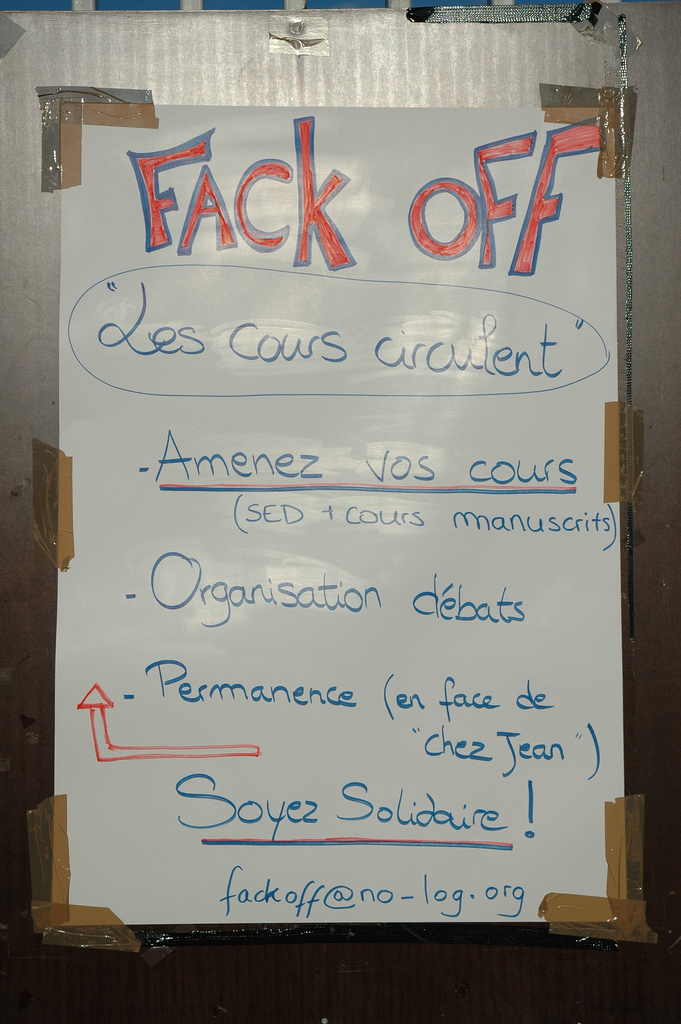 FACK OFF
"Les cours circulent"
- Amenez vos cours
(SED + cours manuscrits)
- Organisation débats
- Permanence (en face de
"chez Jean")
Soyez Solidaire !
fackoff@no-log.org